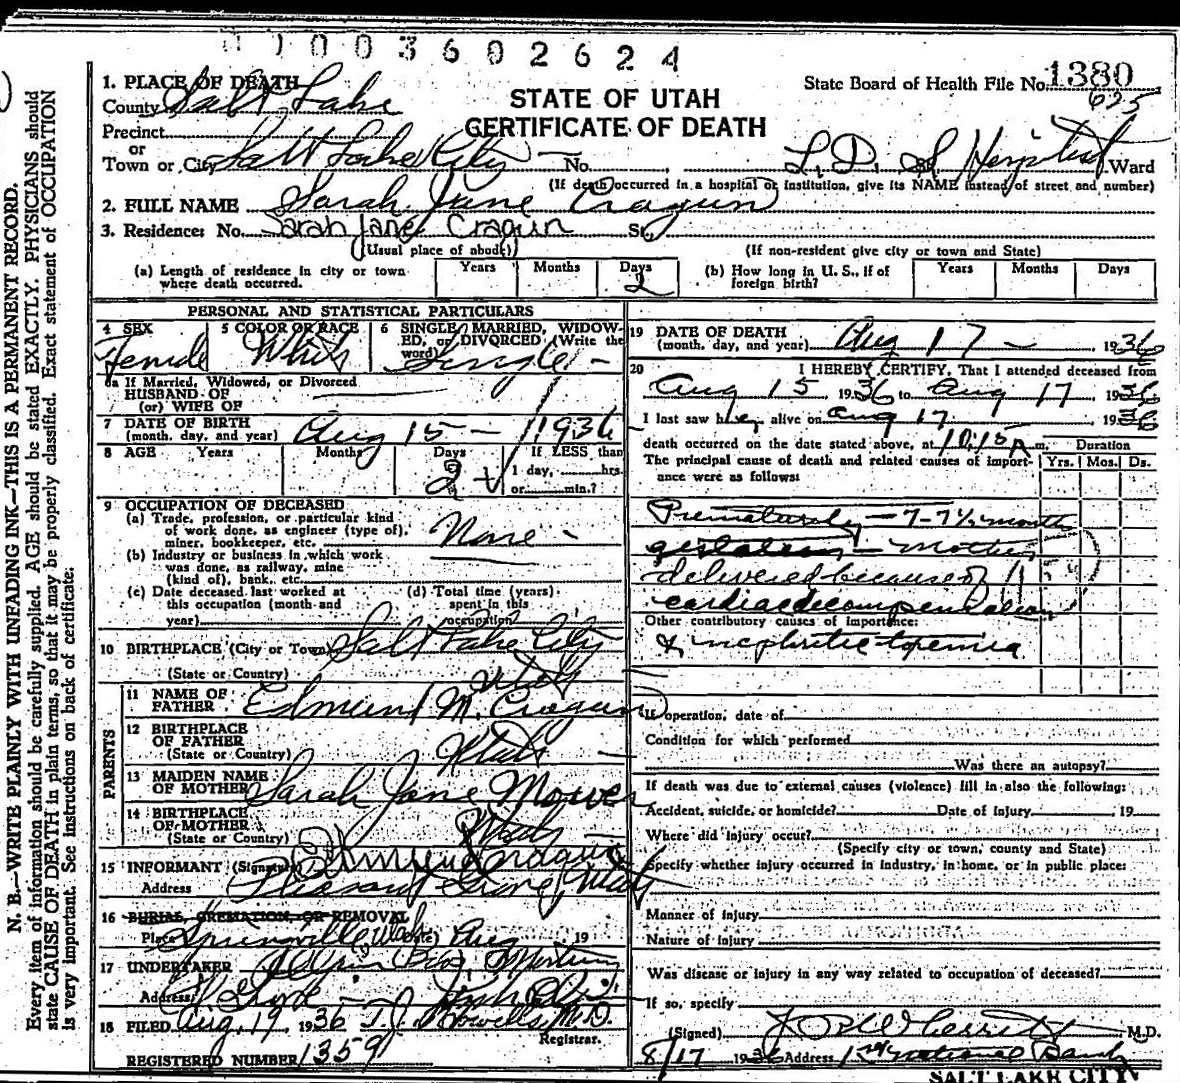 0 1 0 0 3 6 0 2 6 2 4
State Board of Health File No. 1380
625
STATE OF UTAH
CERTIFICATE OF DEATH
1. PLACE OF DEATH
County Salt Lake
Precinct
or
Town or City Salt Lake City No. L. D. S. Hospital Ward
(If death occurred in a hospital or institution, give its NAME instead of street and number)
2. FULL NAME Sarah Jane Cragun
3. Residence: No. Sarah Jane Cragun St.
(Usual place of abode) (If non-resident give city or town and State)
(a) Length of residence in city or town where death occurred. Years Months Days 2
(b) How long in U. S., if of foreign birth? Years Months Days
PERSONAL AND STATISTICAL PARTICULARS
4 SEX Female
5 COLOR OR RACE White
6 SINGLE, MARRIED, WIDOWED, or DIVORCED (Write the word) Single
6a If Married, Widowed, or Divorced
HUSBAND OF
(or) WIFE OF
7 DATE OF BIRTH (month, day, and year) Aug 15 - 1936
8 AGE Years Months Days 2 If LESS than 1 day, hrs. or min.?
9 OCCUPATION OF DECEASED
(a) Trade, profession, or particular kind of work done, as engineer (type of), miner, bookkeeper, etc. None -
(b) Industry or business in which work was done, as railway, mine (kind of), bank, etc.
(c) Date deceased last worked at this occupation (month and year)
(d) Total time (years) spent in this occupation?
10 BIRTHPLACE (City or Town) Salt Lake City
(State or Country) Utah
PARENTS
11 NAME OF FATHER Edmund M. Cragun
12 BIRTHPLACE OF FATHER (State or Country) Utah
13 MAIDEN NAME OF MOTHER Sarah Jane Mower
14 BIRTHPLACE OF MOTHER (State or Country) Utah
15 INFORMANT (Signature) Cragun
Address Pleasant Grove, Utah
16 BURIAL, CREMATION, OR REMOVAL
Place Springville Utah Date Aug 19
17 UNDERTAKER
Address
18 FILED Aug. 19 1936 M.D.
Registrar.
REGISTERED NUMBER 1359
19 DATE OF DEATH (month, day, and year) Aug 17 - , 1936
20 I HEREBY CERTIFY, That I attended deceased from
Aug 15 1936 to Aug 17 1936
I last saw her alive on Aug 17 1936
death occurred on the date stated above, at 10:15 A m.
Duration
Yrs. Mos. Ds.
The principal cause of death and related causes of importance were as follows:
Prematurity - 7-7½ month
gestation - mother
delivered because of
cardiac decompensation
Other contributory causes of importance:
& nephritic toxemia
If operation, date of
Condition for which performed
Was there an autopsy?
If death was due to external causes (violence) fill in also the following:
Accident, suicide, or homicide? Date of Injury , 19
Where did injury occur?
(Specify city or town, county and State)
Specify whether injury occurred in industry, in home, or in public place:
Manner of injury
Nature of injury
Was disease or injury in any way related to occupation of deceased?
If so, specify
(Signed) M.D.
8/17 1936 Address 1st National Bank
SALT LAKE CITY
N. B.—WRITE PLAINLY WITH UNFADING INK—THIS IS A PERMANENT RECORD.
Every item of information should be carefully supplied. AGE should be stated EXACTLY. PHYSICIANS should
state CAUSE OF DEATH in plain terms, so that it may be properly classified. Exact statement of OCCUPATION
is very important. See instructions on back of certificate.